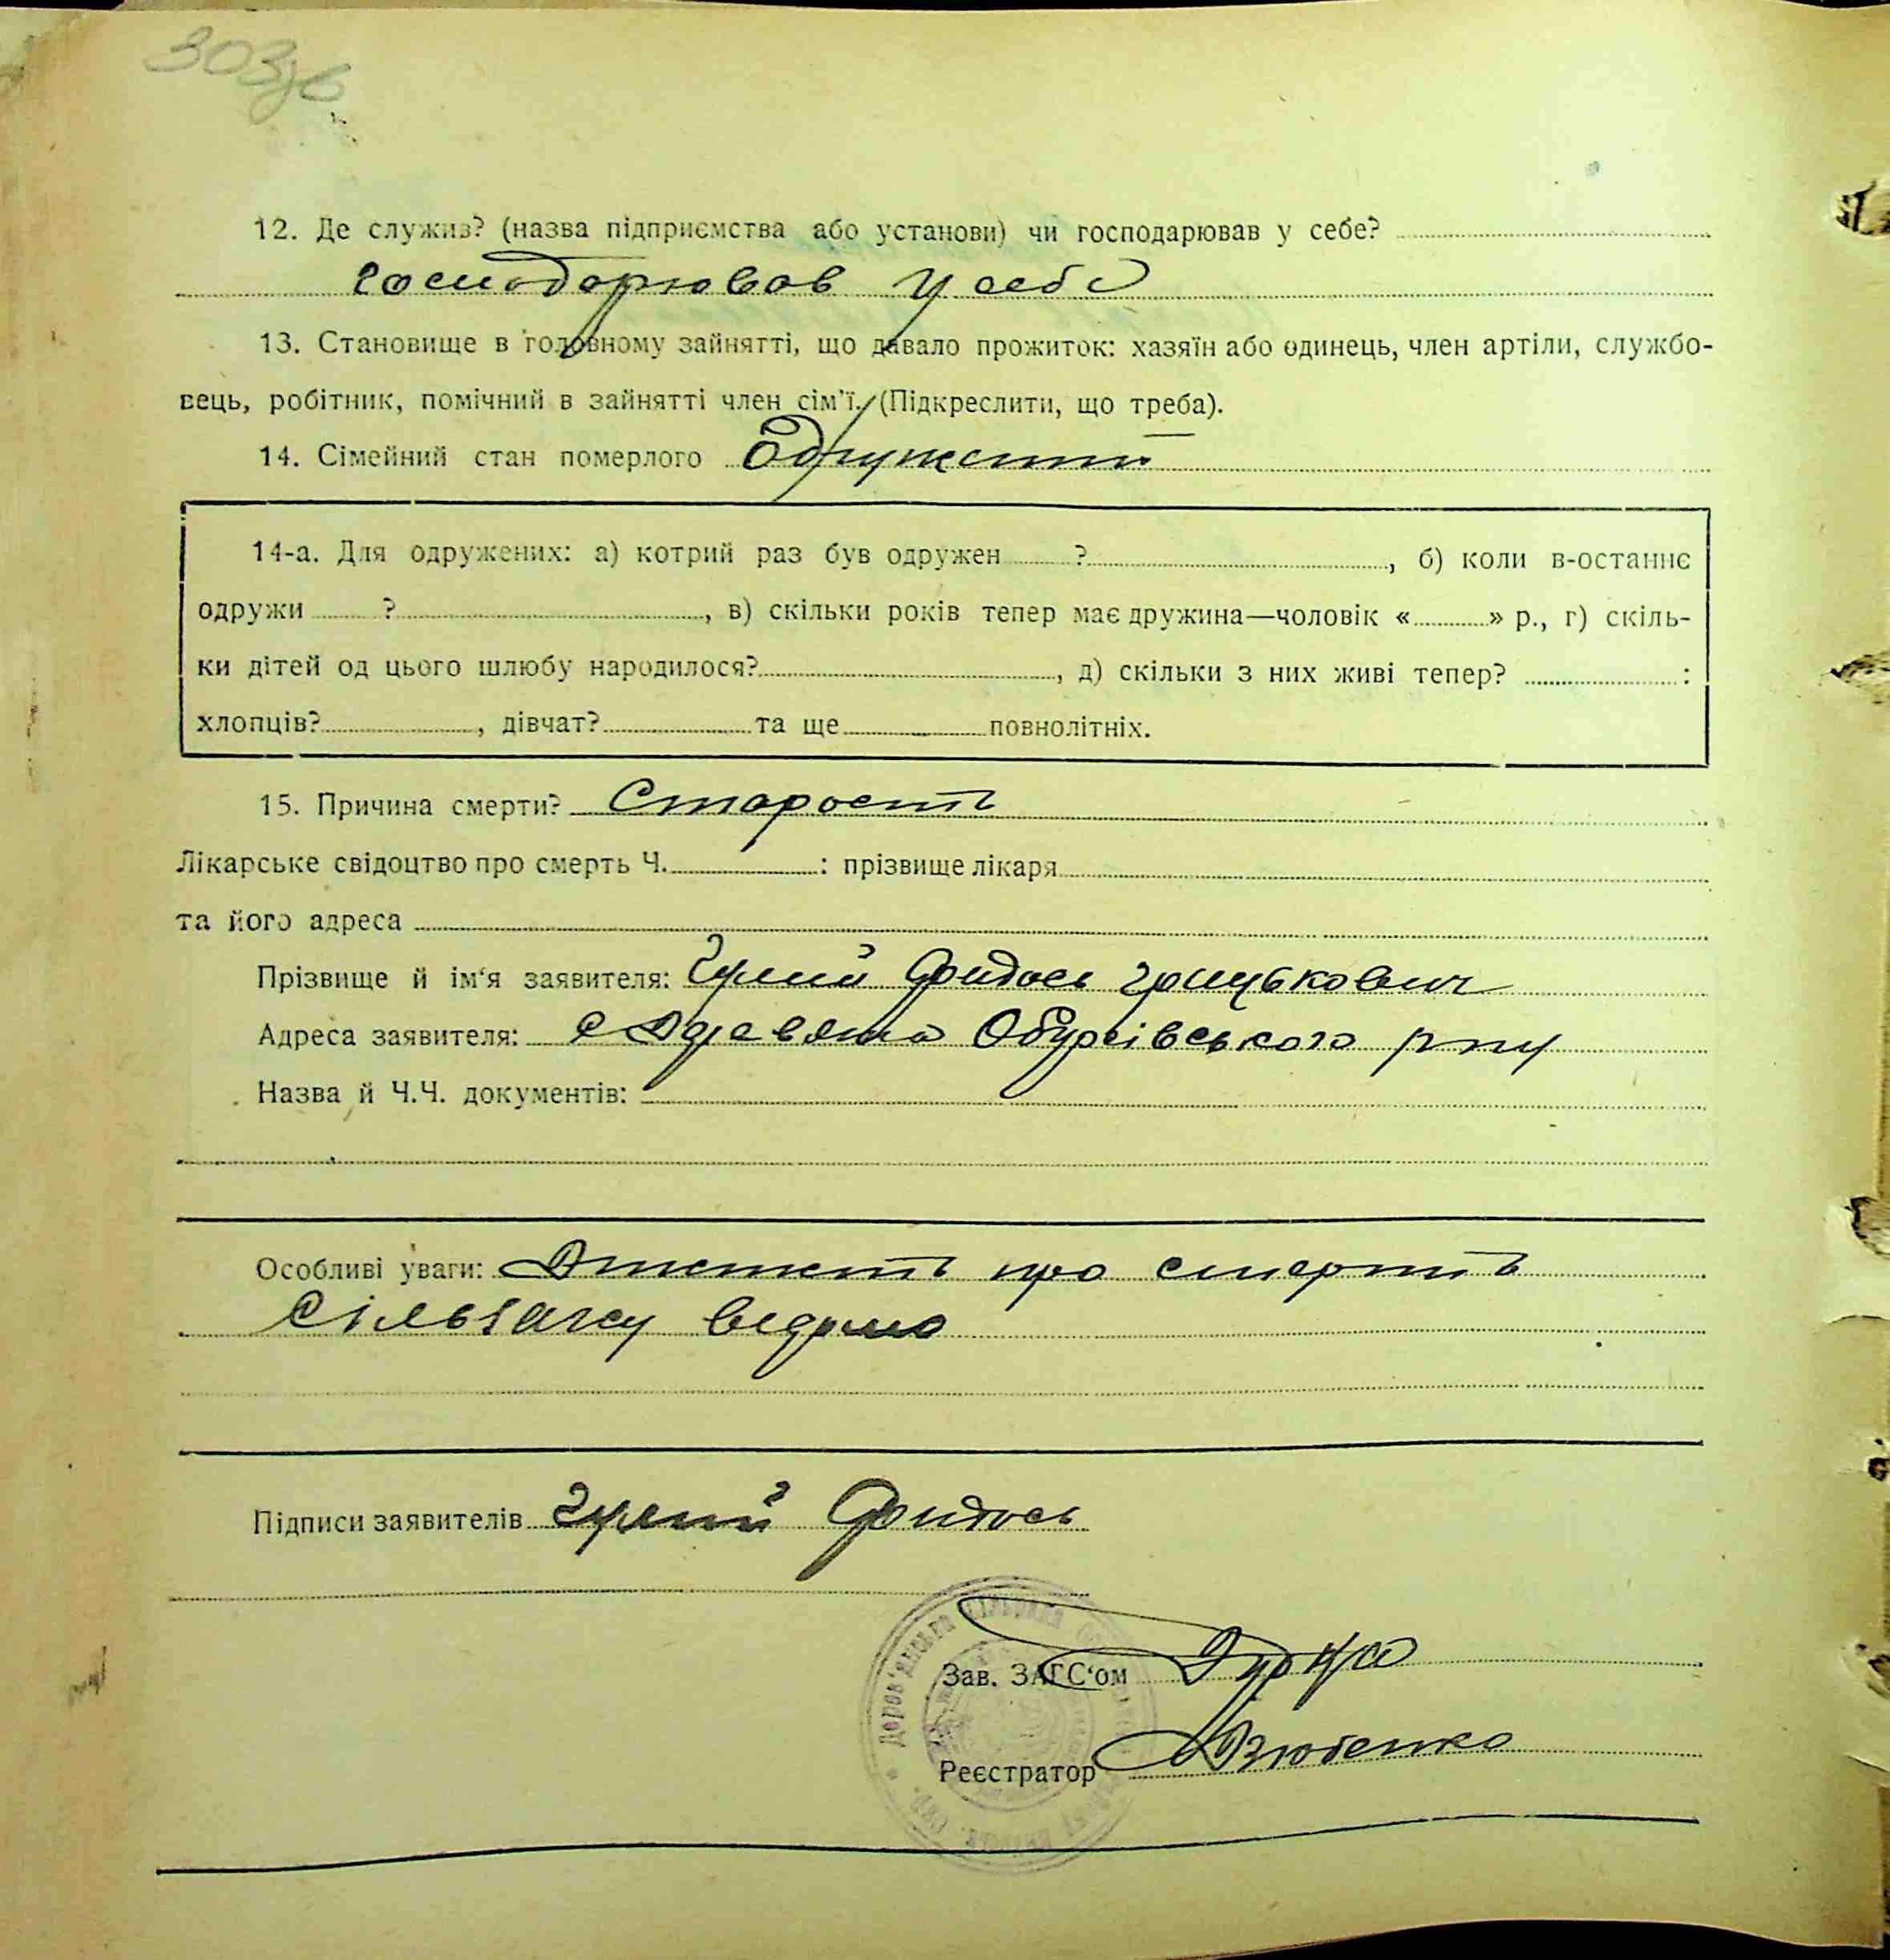 303зв
12. Де служив? (назва підприємства або установи) чи господарював у себе?
господарював у себе
13. Становище в головному зайнятті, що давало прожиток: хазяїн або одинець, член артіли, службо-
вець, робітник, помічний в зайнятті член сім'ї. (Підкреслити, що треба).
14. Сімейний стан померлого Одружений
14-а. Для одружених: а) котрий раз був одружен ? , б) коли в-останнє
одружи ? , в) скільки років тепер має дружина—чоловік « » р., г) скіль-
ки дітей од цього шлюбу народилося? , д) скільки з них живі тепер? :
хлопців? , дівчат? та ще повнолітніх.
15. Причина смерти? Старость
Лікарське свідоцтво про смерть Ч. : прізвище лікаря
та його адреса
Прізвище й ім'я заявителя: Гулий Фидось Грицькович
Адреса заявителя: с Деревяна Обухівського р-ну
Назва й Ч.Ч. документів:
Особливі уваги: про смерть
Сільраду ведомо
Підписи заявителів Гулий Фидось
Зав. ЗАГС'ом
Реєстратор Дзюбенко